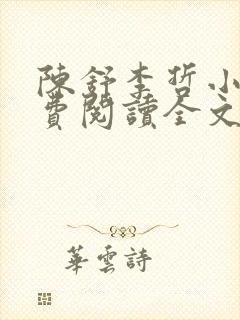 陳舒李哲小
費閱讀全文
華雲詩